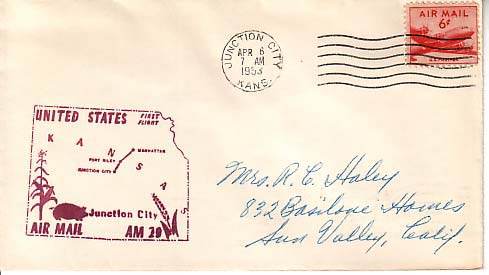 JUNCTION CITY
APR 6
7 AM
1953
KANS.
AIR MAIL
6¢
UNITED STATES FIRST FLIGHT
KANSAS
MANHATTAN
FORT RILEY
JUNCTION CITY
Junction City
AIR MAIL AM 29
Mrs. R. C. Haley
832 Basilone Homes
Sun Valley, Calif.